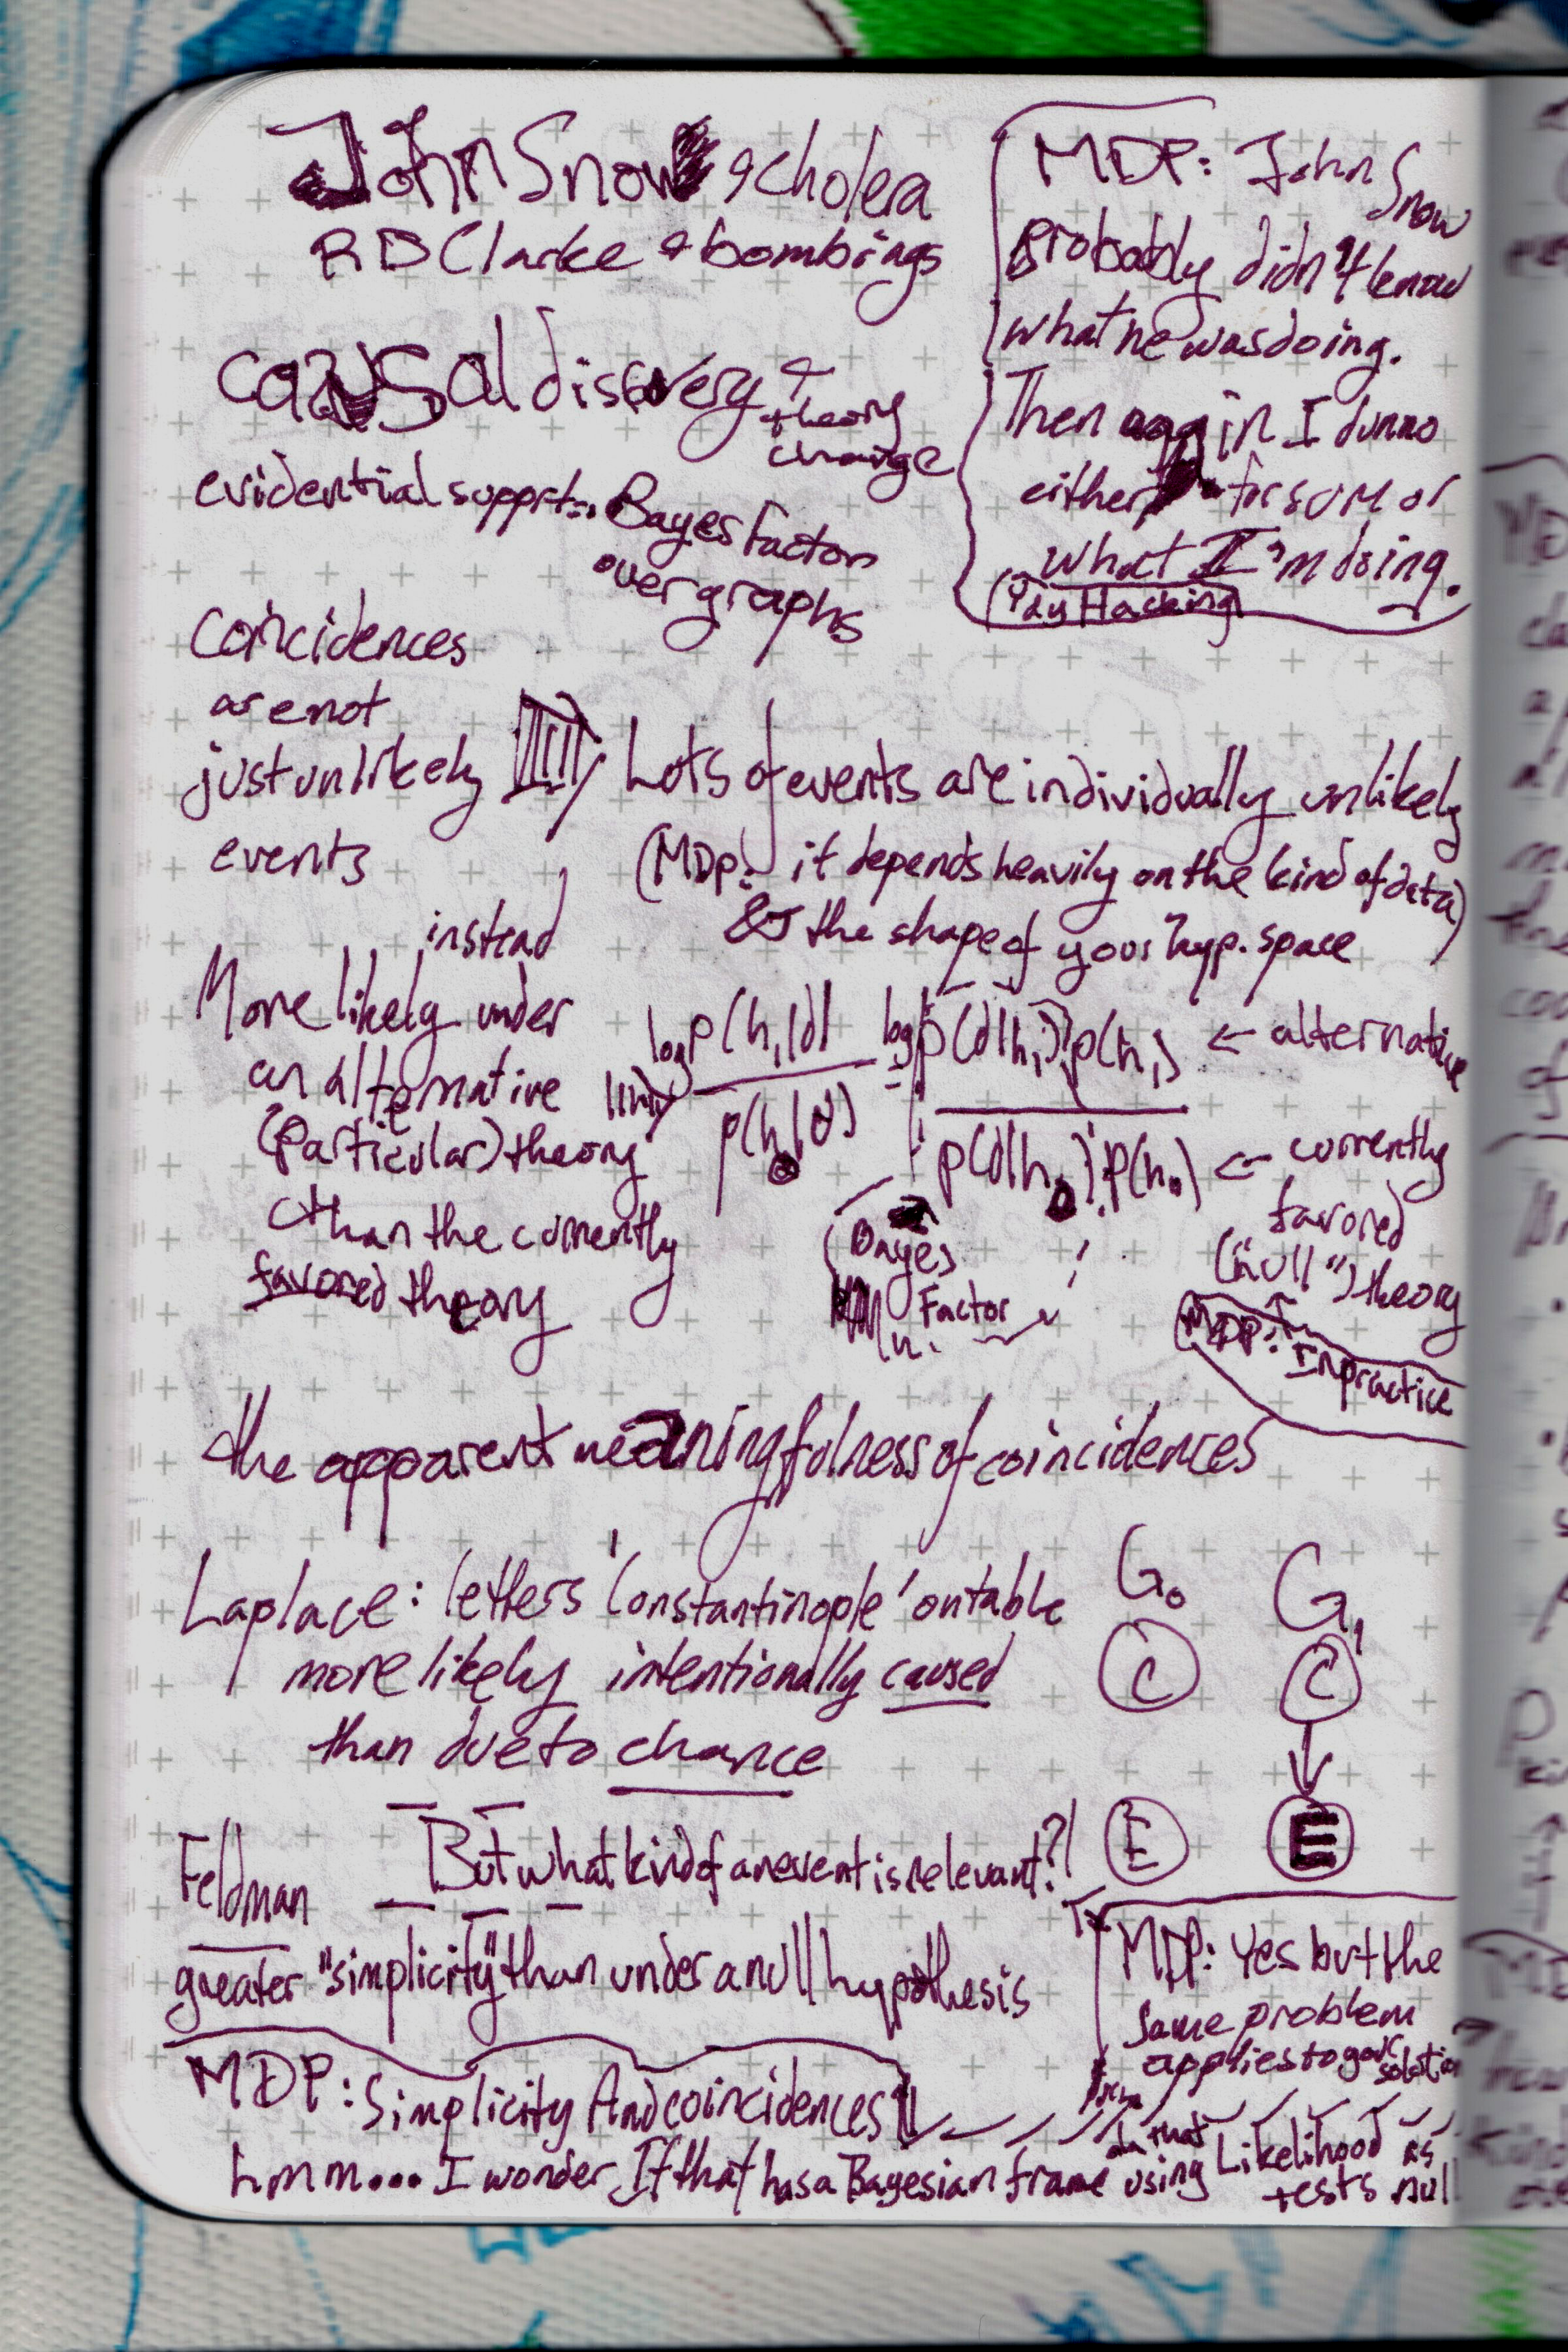 John Snow & cholera
RD Clarke & bombings
MDP: John Snow
probably didn't know
what he was doing.
Then again I dunno
either for sum or
what I'm doing.
(Yay Hacking)
causal discovery &
theory
change
evidential support:
Bayes Factor
over graphs
Coincidences
are not
just unlikely
events
Lots of events are individually unlikely
(MDP: it depends heavily on the kind of data)
& the shape of your hyp. space
instead
More likely under
an alternative
(particular) theory
than the currently
favored theory
log p(h₁|d) / p(h₀|d) = log p(d|h₁) p(h₁) / p(d|h₀) p(h₀)
← alternative
← currently
favored
("null") theory
Bayes
Factor
MDP: In practice
the apparent meaningfulness of coincidences
Laplace: letters 'Constantinople' on table
more likely intentionally caused
than due to chance
G₀ G₁
C C
E E
Feldman
But what kind of an event is relevant?
greater "simplicity" than under a null hypothesis
MDP: Yes but the
same problem
applies to
MDP: Simplicity And coincidences
hmm... I wonder If that has a Bayesian frame using
that Likelihood as
tests null